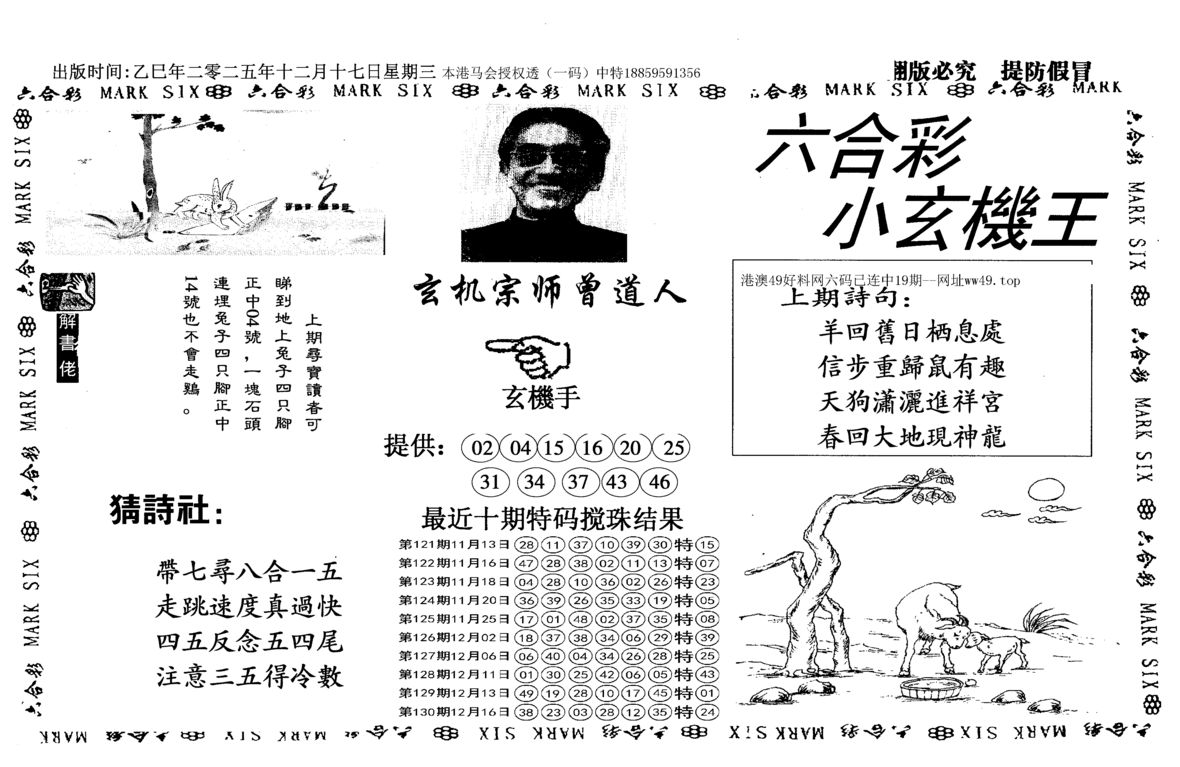 出版时间:乙巳年二零二五年十二月十七日星期三 本港马会授权透（一码）中特18859591356
翻版必究 提防假冒
六合彩 MARK SIX 六合彩 MARK SIX 六合彩 MARK SIX 六合彩 MARK SIX 六合彩 MARK
六合彩
小玄機王
港澳49好料网六码已连中19期--网址ww49.top
上期詩句：
羊回舊日栖息處
信步重歸鼠有趣
天狗瀟灑進祥宮
春回大地現神龍
玄机宗师曾道人
玄機手
提供： 02 04 15 16 20 25
31 34 37 43 46
解書佬
上期尋寶讀者可
睇到地上兔子四只腳
正中04號，一塊石頭
連埋兔子四只腳正中
14號也不會走鷄。
猜詩社：
帶七尋八合一五
走跳速度真過快
四五反念五四尾
注意三五得冷數
最近十期特码搅珠结果
第121期11月13日 28 11 37 10 39 30 特 15
第122期11月16日 47 28 38 02 11 13 特 07
第123期11月18日 04 28 10 36 02 26 特 23
第124期11月20日 36 39 26 35 33 19 特 05
第125期11月25日 17 01 48 02 37 35 特 08
第126期12月02日 18 37 38 34 06 29 特 39
第127期12月06日 06 40 04 34 26 28 特 25
第128期12月11日 01 30 25 42 06 05 特 43
第129期12月13日 49 19 28 10 17 45 特 01
第130期12月16日 38 23 03 28 12 35 特 24
六合彩 MARK SIX 六合彩 MARK SIX 六合彩 MARK SIX 六合彩
六合彩 MARK SIX 六合彩 MARK SIX 六合彩 MARK SIX
MARK 六合彩 SIX MARK 六合彩 SIX MARK 六合彩 SIX MARK 六合彩 SIX MARK 六合彩